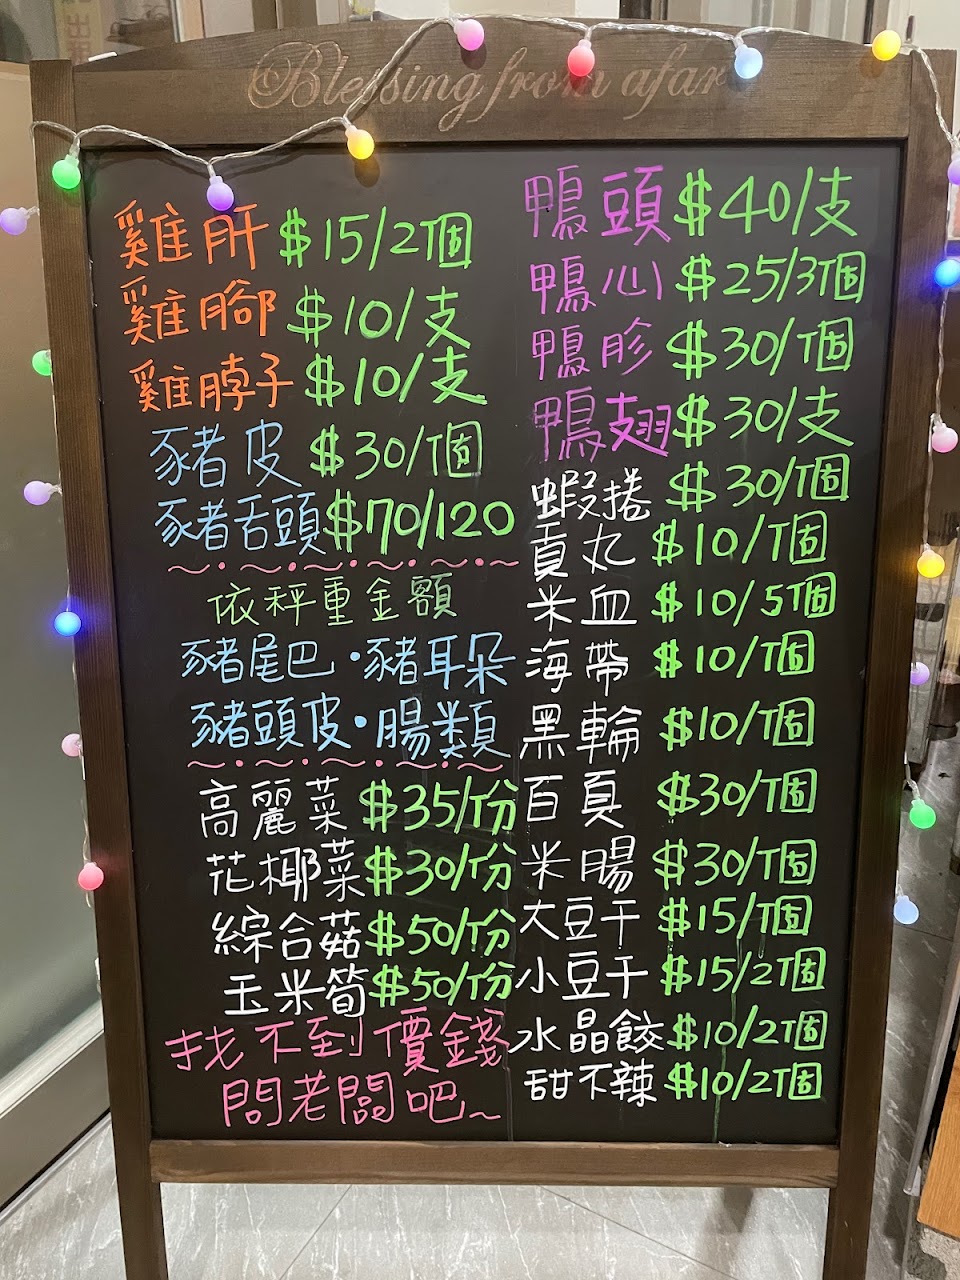 Blessing from afar
雞肝 $15/2個
雞腳 $10/支
雞脖子 $10/支
豬皮 $30/個
豬舌頭 $70/120
依秤重金額
豬尾巴·豬耳朵
豬頭皮·腸類
高麗菜 $35/份
花椰菜 $30/份
綜合菇 $50/份
玉米筍 $50/份
找不到價錢
問老闆吧~
鴨頭 $40/支
鴨心 $25/3個
鴨胗 $30/個
鴨翅 $30/支
蝦捲 $30/個
貢丸 $10/個
米血 $10/5個
海帶 $10/個
黑輪 $10/個
百頁 $30/個
米腸 $30/個
大豆干 $15/個
小豆干 $15/2個
水晶餃 $10/2個
甜不辣 $10/2個